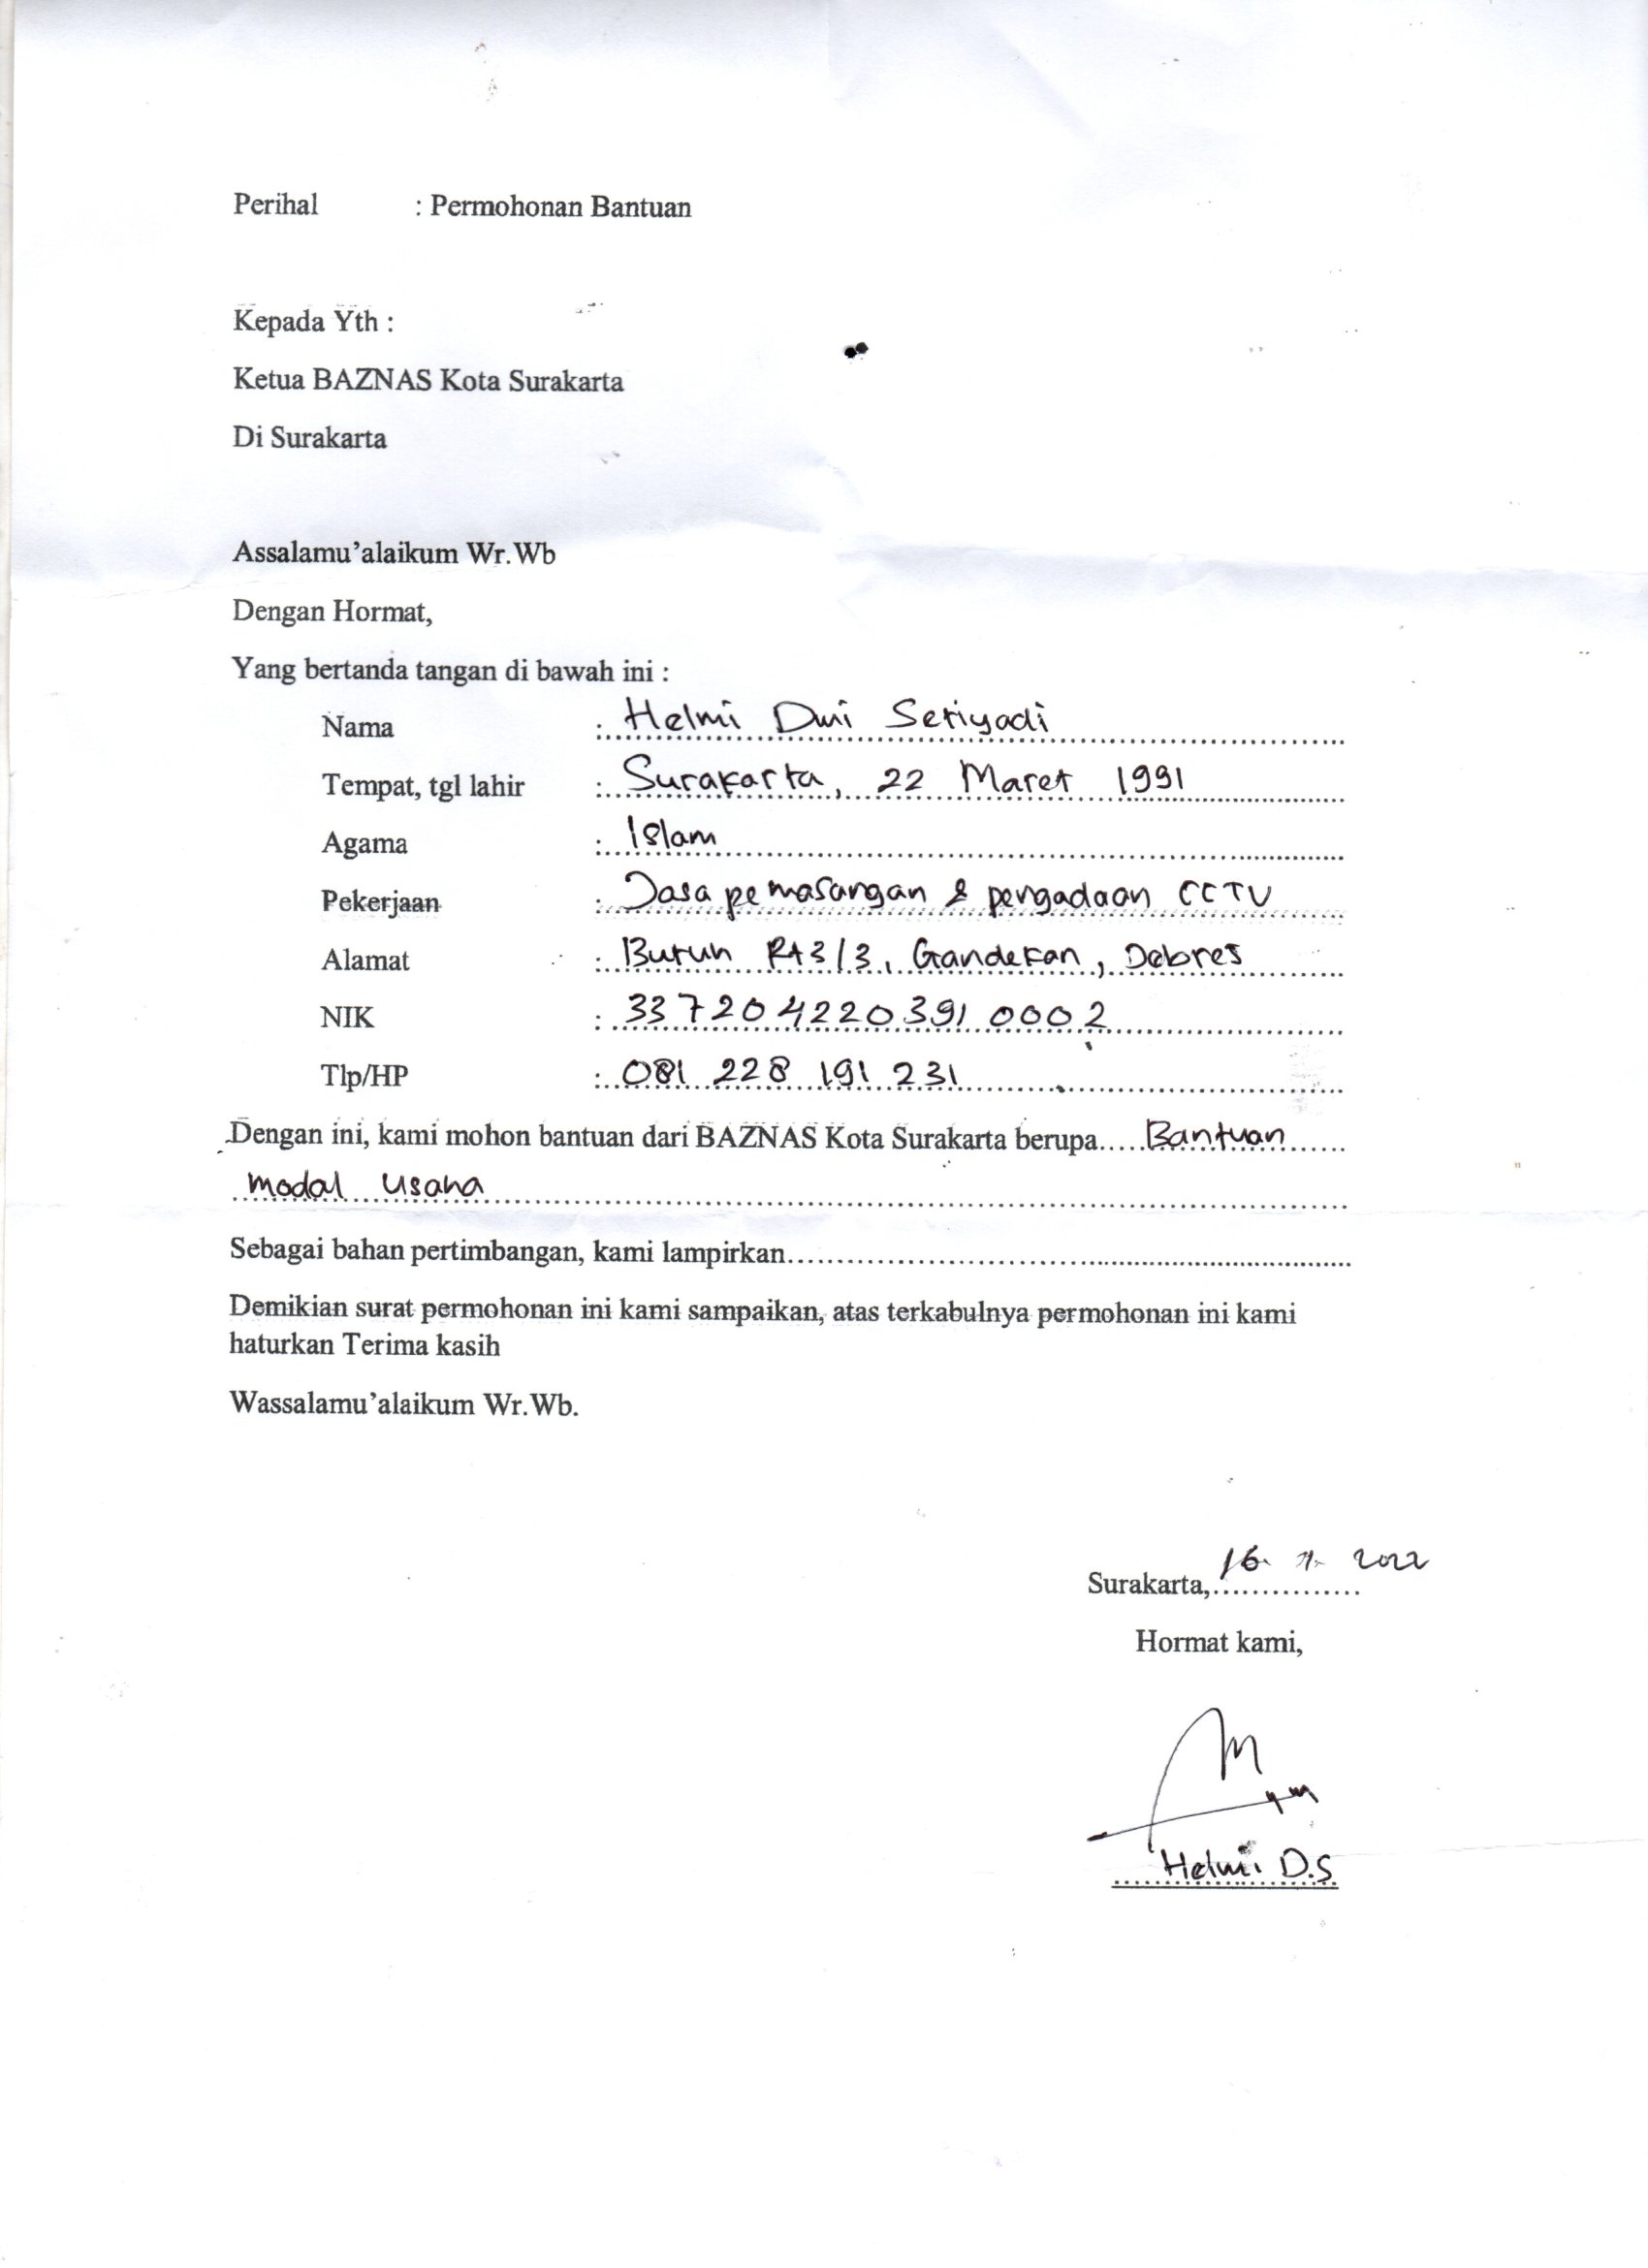 Perihal : Permohonan Bantuan
Kepada Yth :
Ketua BAZNAS Kota Surakarta
Di Surakarta
Assalamu’alaikum Wr.Wb
Dengan Hormat,
Yang bertanda tangan di bawah ini :
Nama : Helmi Dwi Setiyadi
Tempat, tgl lahir : Surakarta, 22 Maret 1991
Agama : Islam
Pekerjaan : Jasa pemasangan & pengadaan CCTV
Alamat : Butuh Rt 3/3, Gandekan, Debres
NIK : 3372042203910002
Tlp/HP : 081 228 191 231
Dengan ini, kami mohon bantuan dari BAZNAS Kota Surakarta berupa..... Bantuan
modal usaha
Sebagai bahan pertimbangan, kami lampirkan..........
Demikian surat permohonan ini kami sampaikan, atas terkabulnya permohonan ini kami
haturkan Terima kasih
Wassalamu’alaikum Wr.Wb.
Surakarta, 16 2022
Hormat kami,
Helmi D.S